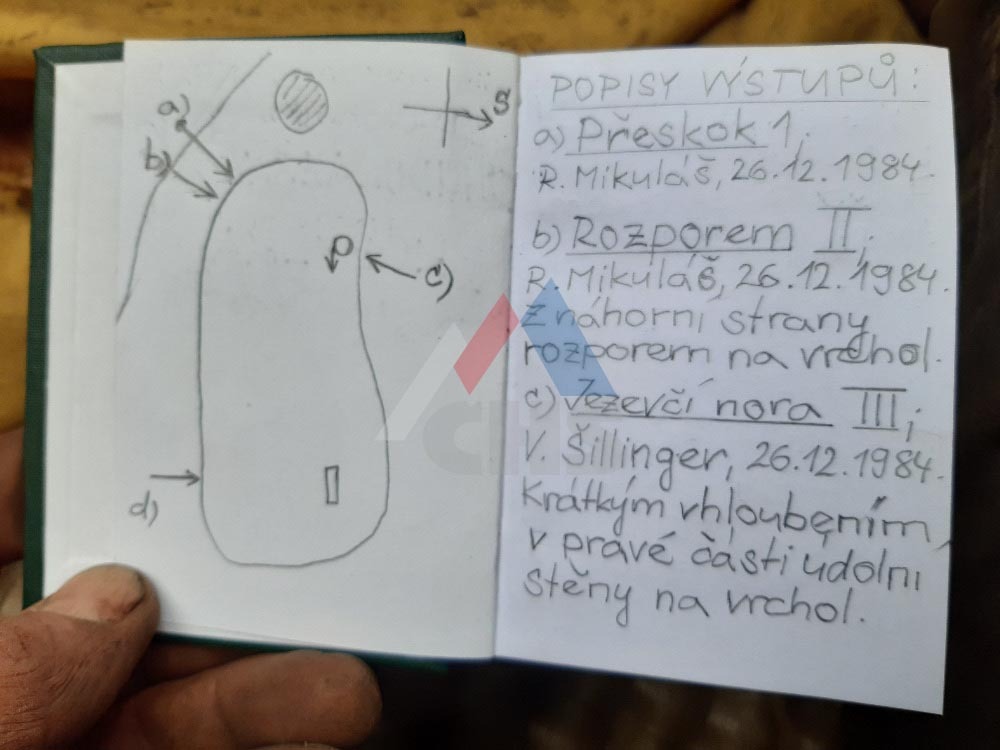 a)
b)
S
c)
d)
POPISY VÝSTUPŮ:
a) Přeskok 1,
R. Mikuláš, 26.12.1984.
b) Rozporem II,
R. Mikuláš, 26.12.1984.
Z náhorní strany
rozporem na vrchol.
c) Jezevčí nora III;
V. Šillinger, 26.12.1984.
Krátkým vhloubením,
v pravé části údolní
stěny na vrchol.